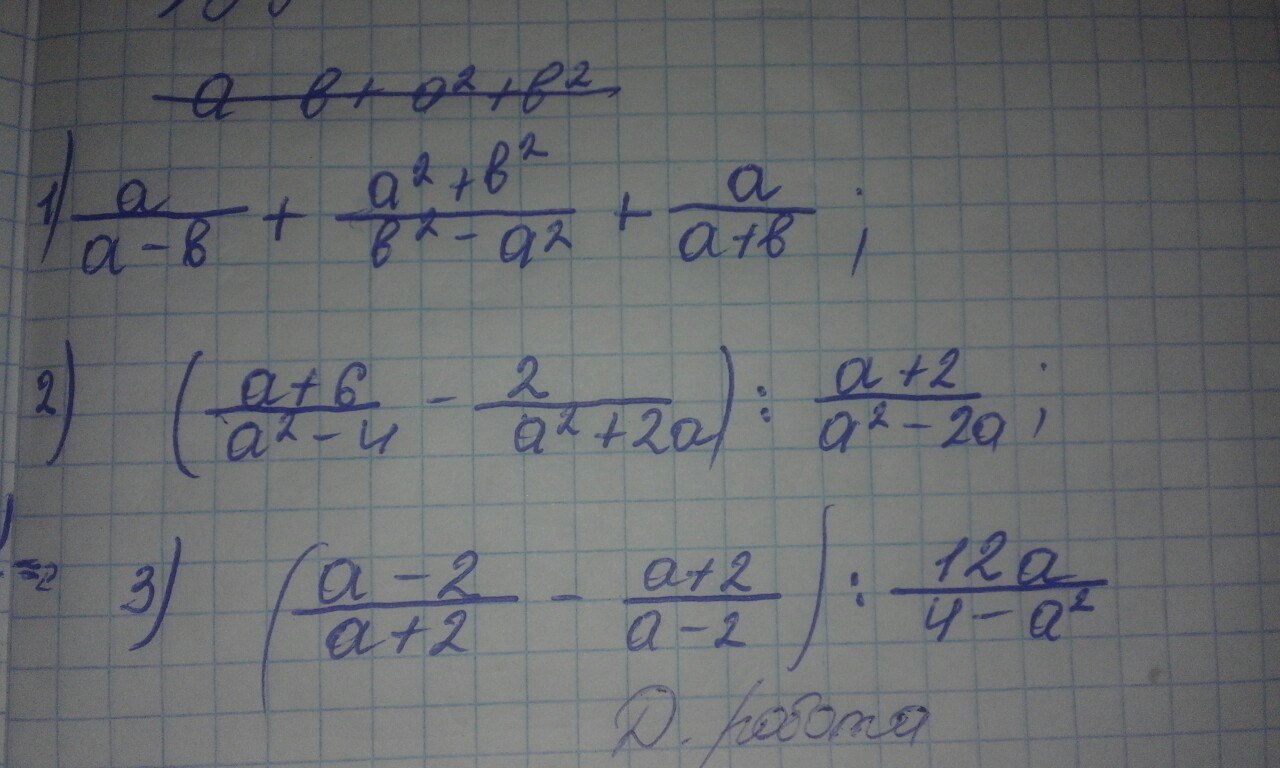 a b + a² + b²
1) a/(a-b) + (a²+b²)/(b²-a²) + a/(a+b) ;
2) ((a+6)/(a²-4) - 2/(a²+2a)) : (a+2)/(a²-2a) ;
3) ((a-2)/(a+2) - (a+2)/(a-2)) : 12a/(4-a²)
Д. работа